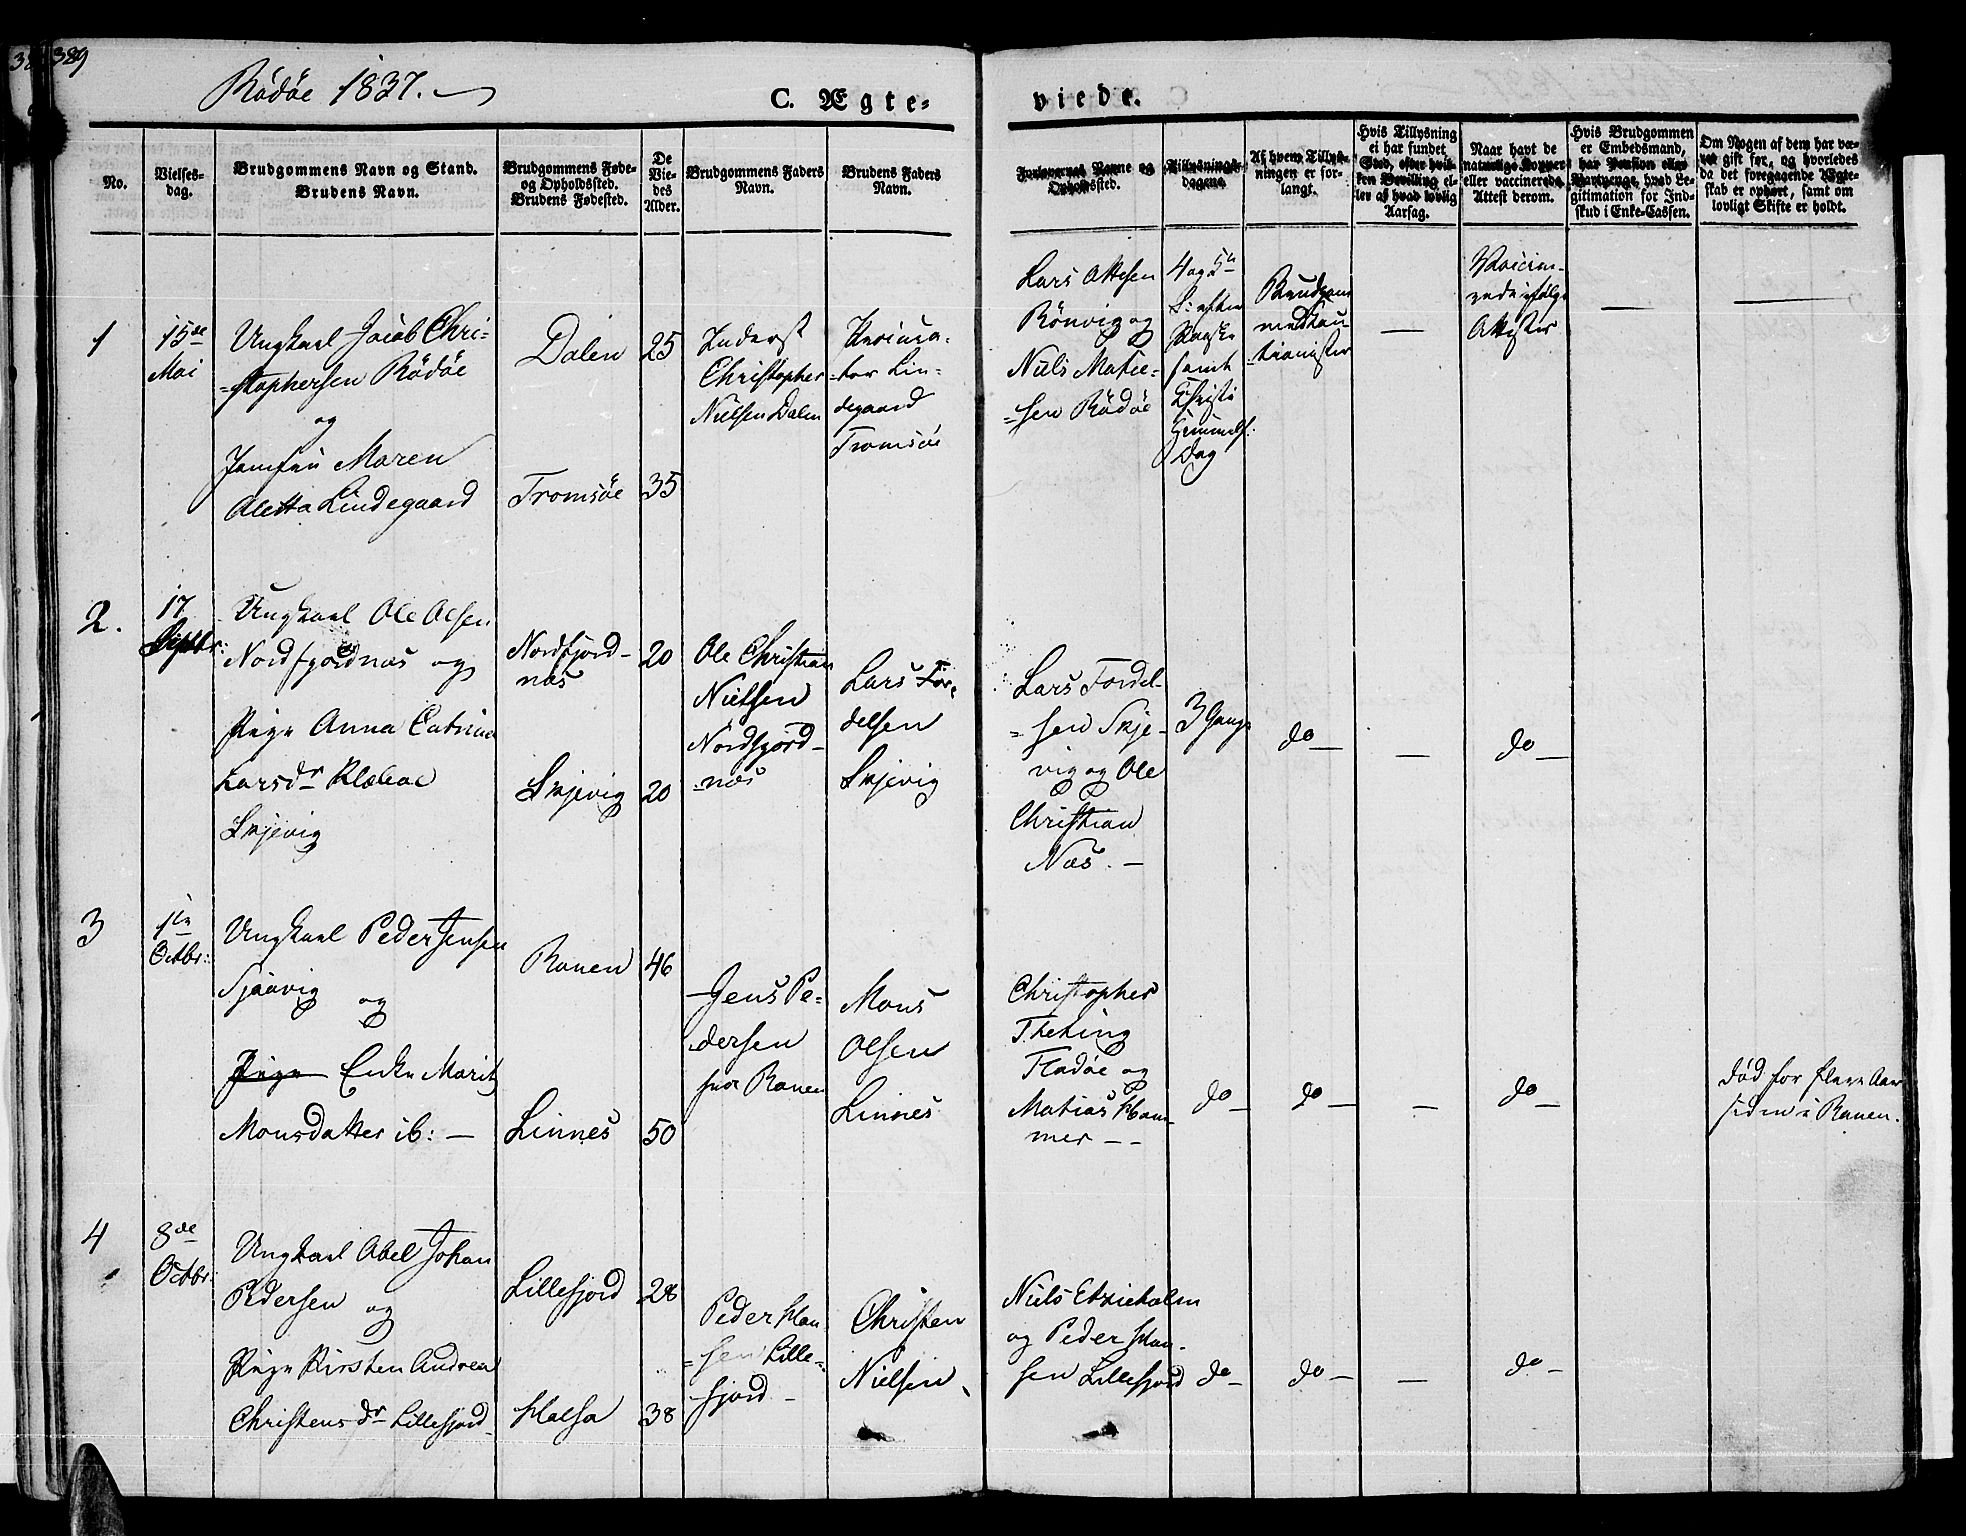 389
Rödöe 1837.
C. Ægte-
viede.
No.
Vielses-
dag.
Brudgommens Navn og Stand.
Brudens Navn.
Brudgommens Føde-
og Opholdssted.
Brudens Fødested.
De
Vie-
des
Alder.
Brudgommens Faders
Navn.
Brudens Faders
Navn.
Forlovernes Navne og
Opholdssted.
Tillysnings-
dagene.
Af hvem Tillys-
ningen er for-
langt.
Hvis Tillysning
ei har fundet
Sted, efter hvil-
ken Bevilling el-
ler af hvad lovlig
Aarsag.
Naar havt de
naturlige Kopper
eller vaccinerede,
Attest derom.
Hvis Brudgommen
er Embedsmand,
har Pension eller
Vartpenge, hvad Le-
gitimation for Ind-
skud i Enke-Cassen.
Om Nogen af dem har væ-
ret gift før, og hvorledes
da det foregaaende Ægte-
skab er ophørt, samt om
lovligt Skifte er holdt.
1
15de
Mai
Ungkarl Jacob Chri-
=stophersen Rödöe
og
Jomfru Maren
Aletta Lindegaard
Dalen
Tromsöe
25
35
Inderst
Christopher
Nielsen Dalen
Procura-
tor Lin-
degaard
Tromsöe
Lars Ottesen
Rönvig og
Niels Matie-
=sen Rödöe
4 og 5te
S: efter
Paaske
samt
Christi
Himmelf:
Dag
Brudgom
med Kau-
tionister
—
Vaccine-
rede ifølge
Attester
—
—
2.
17
Septbr:
Ungkarl Ole Olsen
Nordfjordnæs og
Pige Anna Catrina
Larsdr Klæboe
Skjevig
Nordfjord-
næs
Skjevig
20
20
Ole Christian
Nielsen
Nordfjord-
næs
Lars Tor-
delsen
Skjevig
Lars Tordel-
=sen Skje-
vig og Ole
Christian
Næs. —
3 Gange
do —
—
do —
3
1te
Octbr:
Ungkarl Peder Jensen
Sjaavig og
Pige Enke Marit
Monsdatter ib: —
Ranen
Linnes
46
50
Jens Pe-
dersen
Ranen
Mons
Olsen
Linnes
Christopher
Thening
Fladöe og
Matias Ham-
mer — -
do —
do —
—
do —
død for flere Aar
siden i Ranen.
4
8de
Octbr:
Ungkarl Abel Johan
Pedersen og
Pige Kirsten Andrea
Christensdr Lillefjord
Lillefjord
Halsa
28
38
Peder Han
=sen Lille-
fjord —
Christen
Nielsen
Niels
og Peder Han-
sen Lillefjord
do —
do —
—
do —